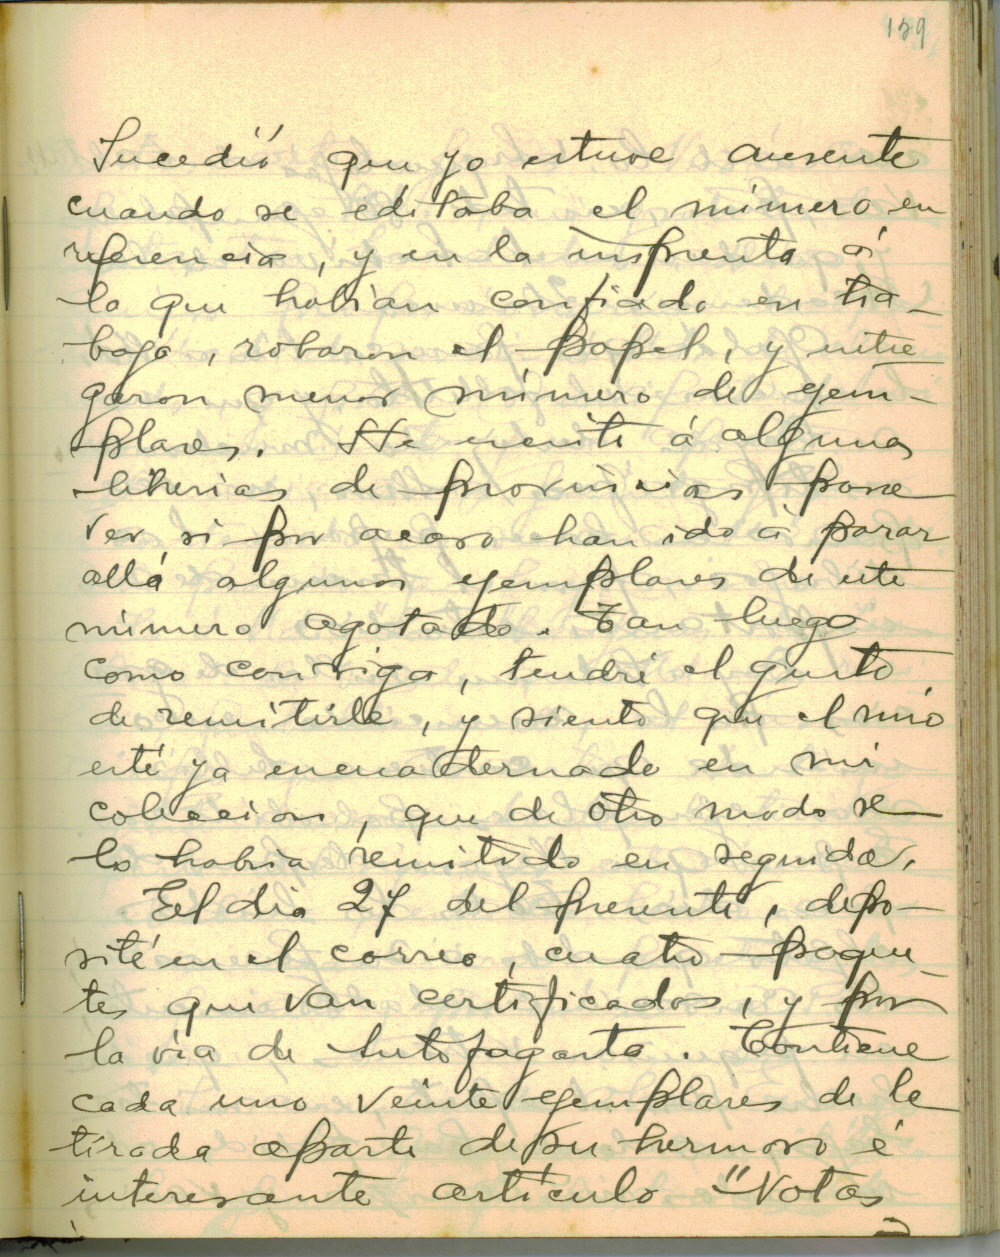 159
Sucedió que yo estuve ausente
cuando se editaba el número en
referencia, y en la imprenta á
la que habian confiado en tra-
bajo, robaron el papel, y entre
garon menor número de ejem-
plares. He escrito á algunas
librerias de provincias para
ver si por acaso han ido á parar
allá algunos ejemplares de este
número agotado. Tan luego
como consiga, tendré el gusto
de remitirle, y siento que el mio
esté ya encuadernado en mi
coleccion, que de otro modo se
lo habria remitido en seguida.
El dia 27 del presente, depo-
sité en el correo, cuatro paque-
tes que van certificados, y por
la via de Antofagasta. Contiene
cada uno veinte ejemplares de la
tirada aparte de su hermoso é
interesante artículo "Notas